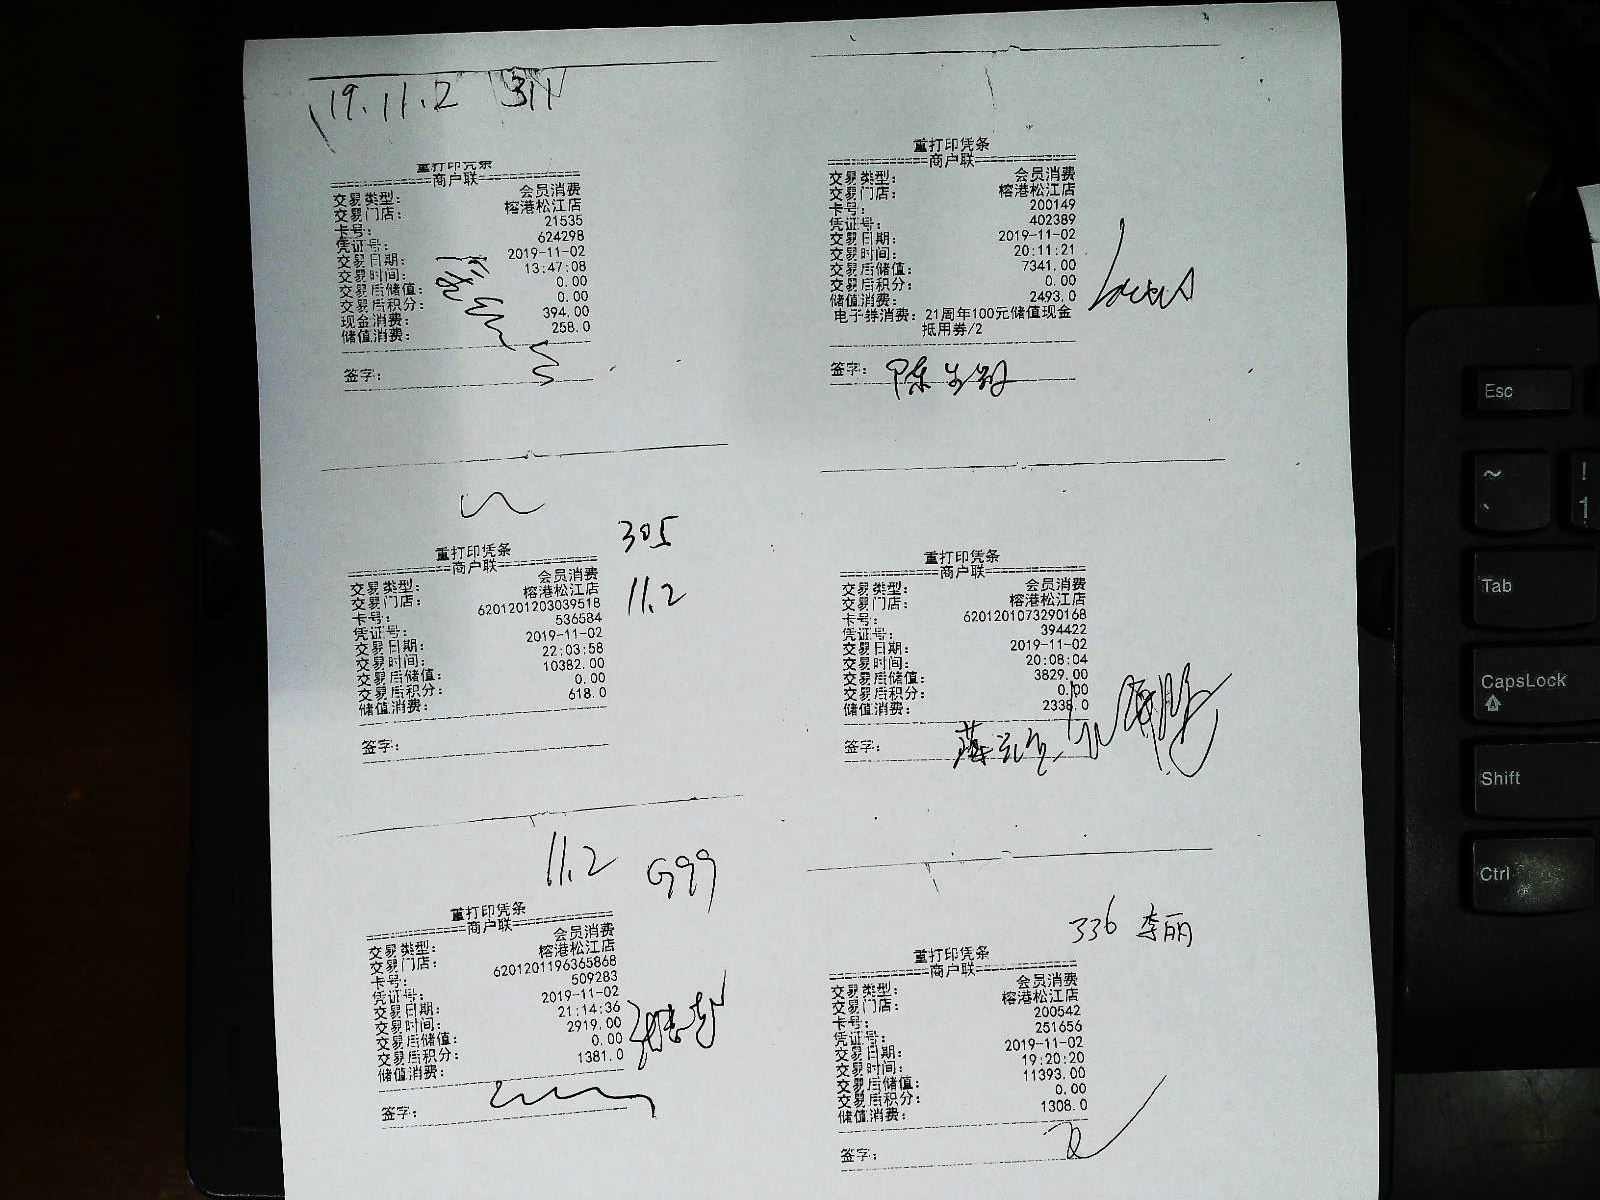 19.11.2 311
重打印凭条
商户联
交易类型: 会员消费
交易门店: 榕港松江店
卡号: 21535
凭证号: 624298
交易日期: 2019-11-02
交易时间: 13:47:08
交易后储值: 0.00
交易后积分: 0.00
现金消费: 394.00
储值消费: 258.0
签字:
重打印凭条
商户联
交易类型: 会员消费
交易门店: 榕港松江店
卡号: 200149
凭证号: 402389
交易日期: 2019-11-02
交易时间: 20:11:21
交易后储值: 7341.00
交易后积分: 0.00
储值消费: 2493.0
电子券消费: 21周年100元储值现金
抵用券/2
签字:
305
11.2
重打印凭条
商户联
交易类型: 会员消费
交易门店: 榕港松江店
卡号: 6201201203039518
凭证号: 536584
交易日期: 2019-11-02
交易时间: 22:03:58
交易后储值: 10382.00
交易后积分: 0.00
储值消费: 618.0
签字:
重打印凭条
商户联
交易类型: 会员消费
交易门店: 榕港松江店
卡号: 6201201073290168
凭证号: 394422
交易日期: 2019-11-02
交易时间: 20:08:04
交易后储值: 3829.00
交易后积分: 0.00
储值消费: 2338.0
签字:
11.2 G99
重打印凭条
商户联
交易类型: 会员消费
交易门店: 榕港松江店
卡号: 6201201196365868
凭证号: 509283
交易日期: 2019-11-02
交易时间: 21:14:36
交易后储值: 2919.00
交易后积分: 0.00
储值消费: 1381.0
签字:
336 李丽
重打印凭条
商户联
交易类型: 会员消费
交易门店: 榕港松江店
卡号: 200542
凭证号: 251656
交易日期: 2019-11-02
交易时间: 19:20:20
交易后储值: 11393.00
交易后积分: 0.00
储值消费: 1308.0
签字:
Esc
~ !
` 1
Tab
CapsLock
Shift
Ctrl